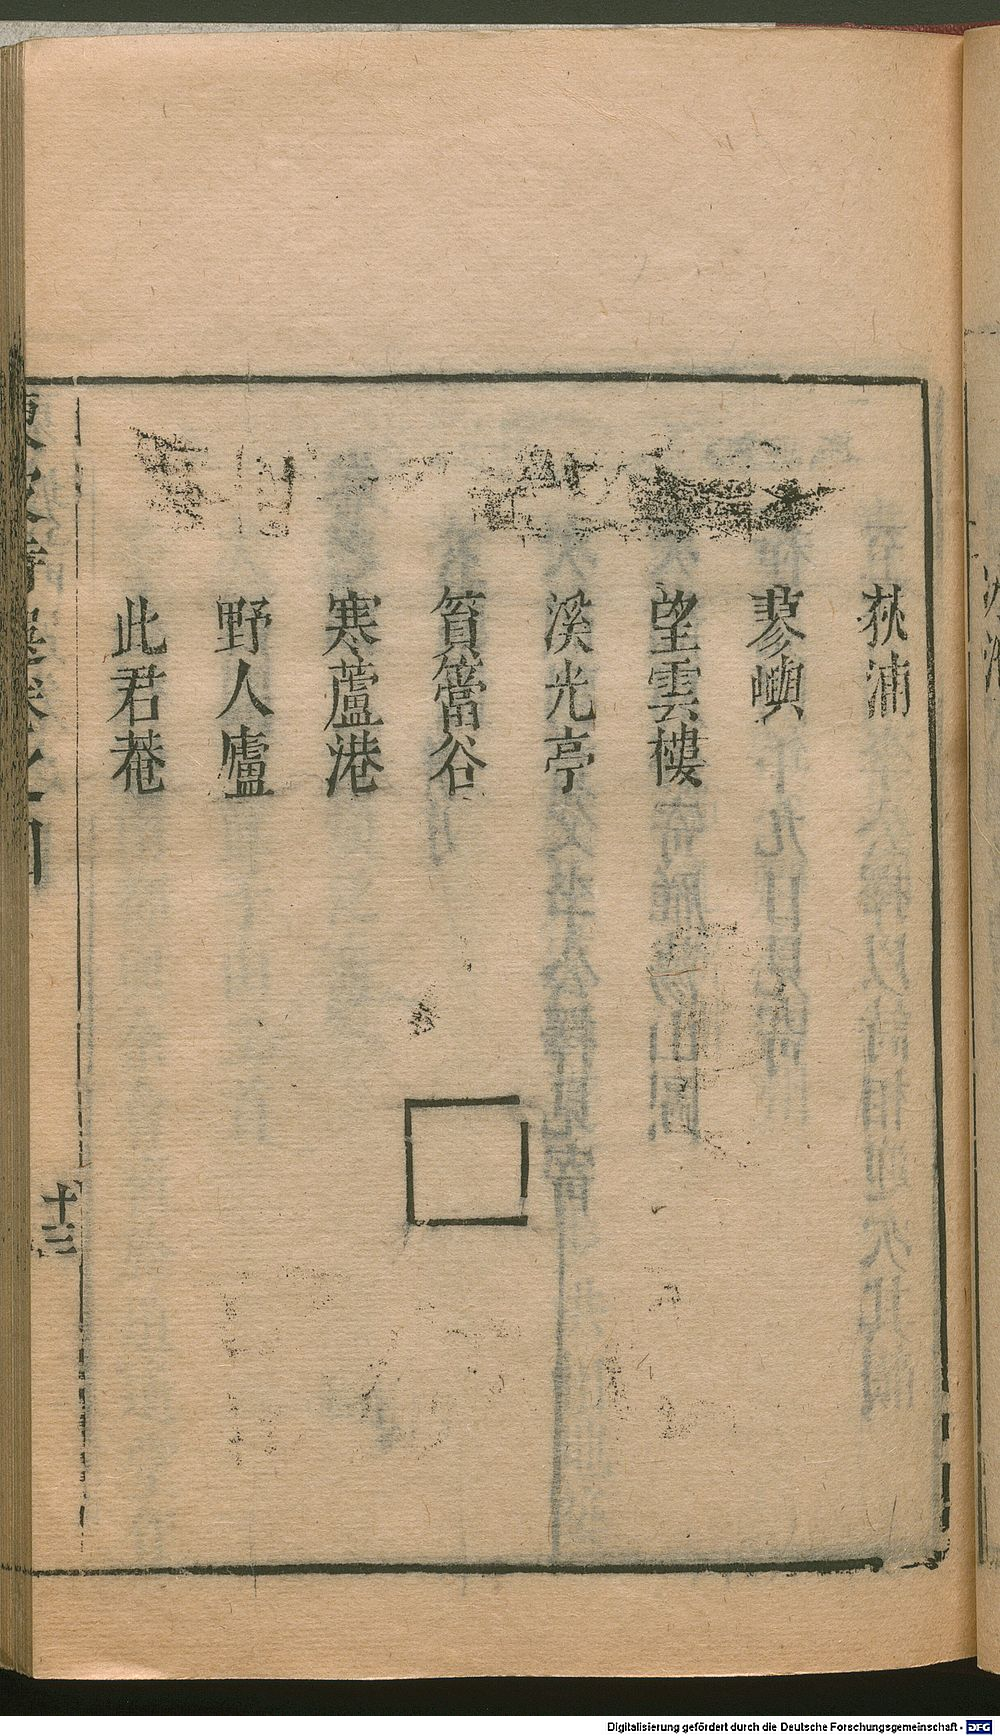 荻浦
蓼嶼
望雲樓
溪光亭
篔簹谷
寒蘆港
野人廬
此君菴
卷之四
十三
Digitalisierung gefördert durch die Deutsche Forschungsgemeinschaft - DFG